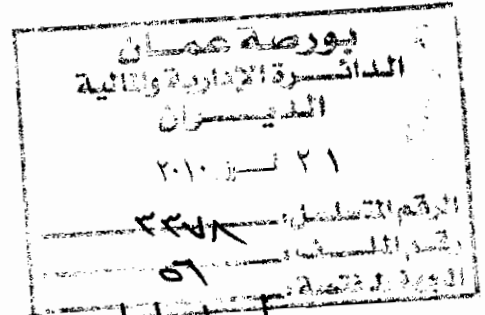 بورصة عمـــان
الدائـــرة الإدارية والمالية
الديـــوان
٢١ تمـــوز ٢٠١٠
الرقم التسلسلي:
رقم الملـــف: ٥٦
الجهة المختصة: